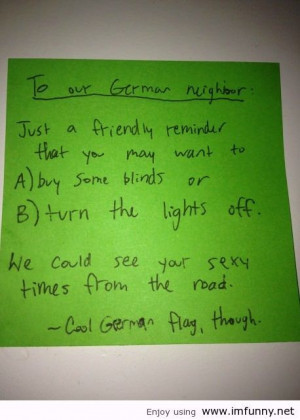 To our German neighbor:
Just a friendly reminder
that you may want to
A) buy some blinds or
B) turn the lights off.
We could see your sexy
times from the road.
~Cool German flag, though.
Enjoy using www.imfunny.net